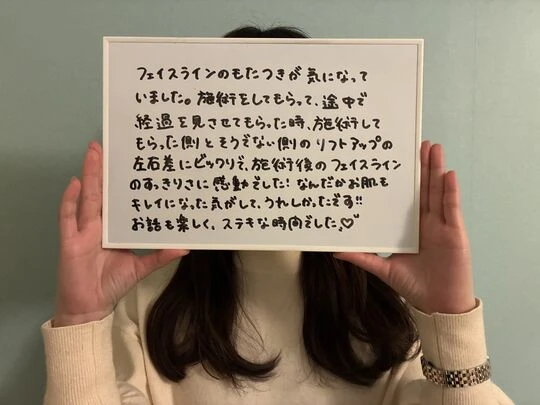 フェイスラインのもたつきが気になって
いました。施術をしてもらって、途中で
経過を見させてもらった時、施術して
もらった側とそうでない側のリフトアップの
左右差にビックリで、施術後のフェイスライン
のすっきりさに感動でした！なんだかお肌も
キレイになった気がして、うれしかったです!!
お話も楽しく、ステキな時間でした。♡